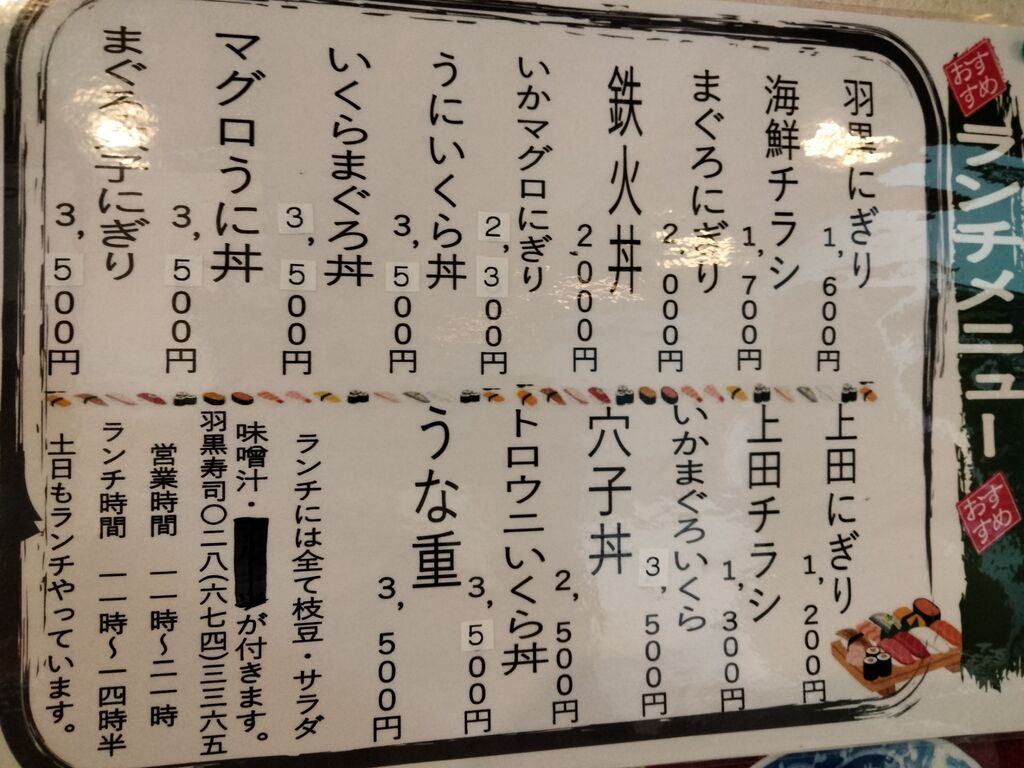 おすすめ
ランチメニュー
おすすめ
羽黒にぎり 1,600円
海鮮チラシ 1,700円
まぐろにぎり 2,000円
鉄火丼 2,000円
いかマグロにぎり 2,300円
うにいくら丼 3,500円
いくらまぐろ丼 3,500円
マグロうに丼 3,500円
まぐろ 子にぎり 3,500円
上田にぎり 1,200円
上田チラシ 1,300円
いかまぐろいくら 3,500円
穴子丼 2,500円
トロウニいくら丼 3,500円
うな重 3,500円
ランチには全て枝豆・サラダ
味噌汁・ が付きます。
羽黒寿司〇二八(六七四)三三六五
営業時間 一一時～二一時
ランチ時間 一一時～一四時半
土日もランチやっています。